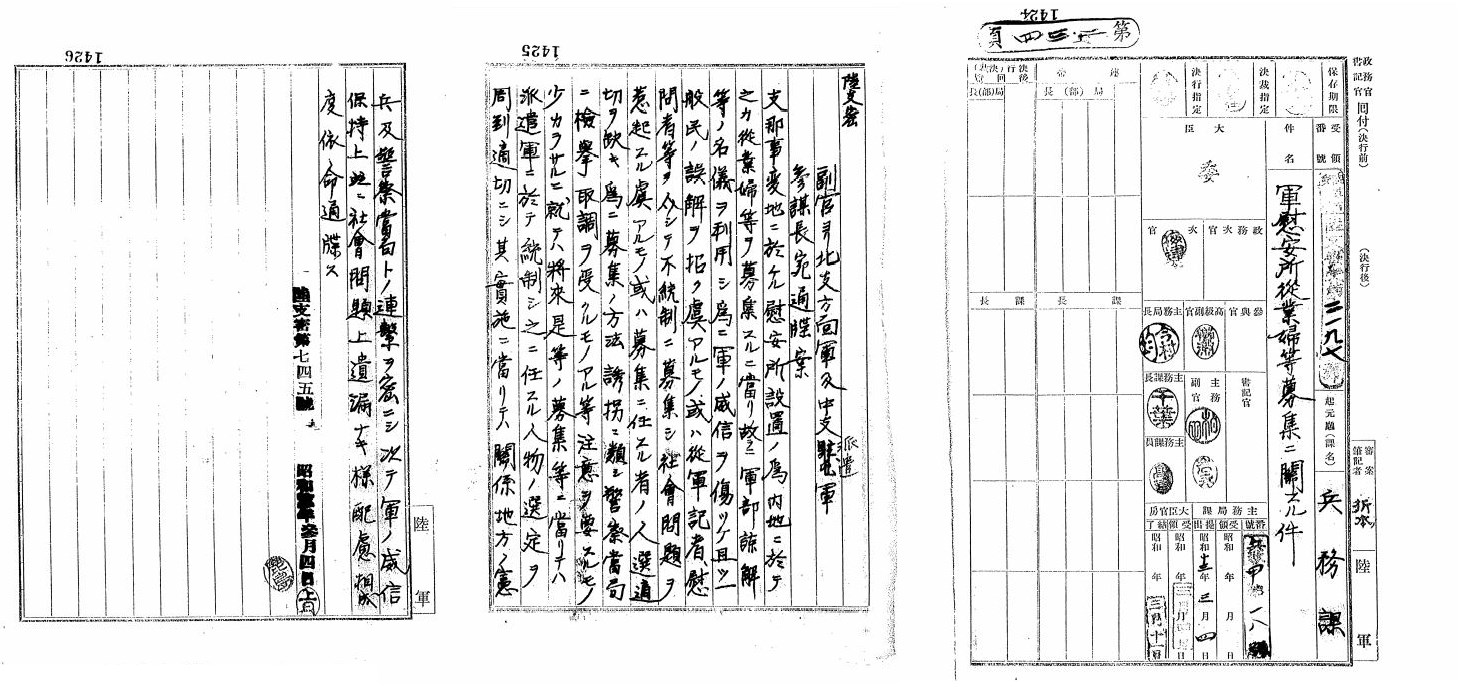 1424
第
政務官
書記官
回付(決行前)
(決行後)
審案
筆記者
陸軍
保存期限
決裁指定
決行指定
連帯
決行後(決)回覧
局(部)長
局(部)長
受領番號
二一九七
起元廳(課名)
兵務課
件名
軍慰安所従業婦等募集ニ關スル件
大臣
政務次官
次官
參與官
高級副官
主務局長
今村
書記官
主務副官
主務課長
千葉
主務課員
課長
課長
主務局課
大臣官房
番號
受領
提出
受領
結了
昭和 年 月 日
昭和十三年三月四日
昭和 年 月 日
昭和 年三月十一日
1425
陸支密
副官ヨリ北支方面軍及中支派遣軍
參謀長宛通牒案
支那事変地ニ於ケル慰安所設置ノ為内地ニ於テ
之カ從業婦等ヲ募集スルニ當リ故ラニ軍部諒解
等ノ名儀ヲ利用シ為ニ軍ノ威信ヲ傷ツケ且ツ一
般民ノ誤解ヲ招ク虞アルモノ或ハ從軍記者、慰
問者等ヲ介シテ不統制ニ募集シ社會問題ヲ
惹起スル虞アルモノ或ハ募集ニ任スル者ノ人選適
切ヲ欠キ為ニ募集ノ方法誘拐ニ類シ警察當局
ニ檢擧取調ヲ受クルモノアル等注意ヲ要スルモノ
少カラサルニ就テハ將來是等ノ募集等ニ當リテハ
派遣軍ニ於テ統制シ之ニ任スル人物ノ選定ヲ
周到適切ニシ其實施ニ當リテハ關係地方ノ憲
1426
兵及警察當局トノ連繋ヲ密ニシ次テ軍ノ威信
保持上並ニ社會問題上遺漏ナキ様配慮相成
度依命通牒ス
陸支密第七四五號
昭和拾參年參月四日
陸軍